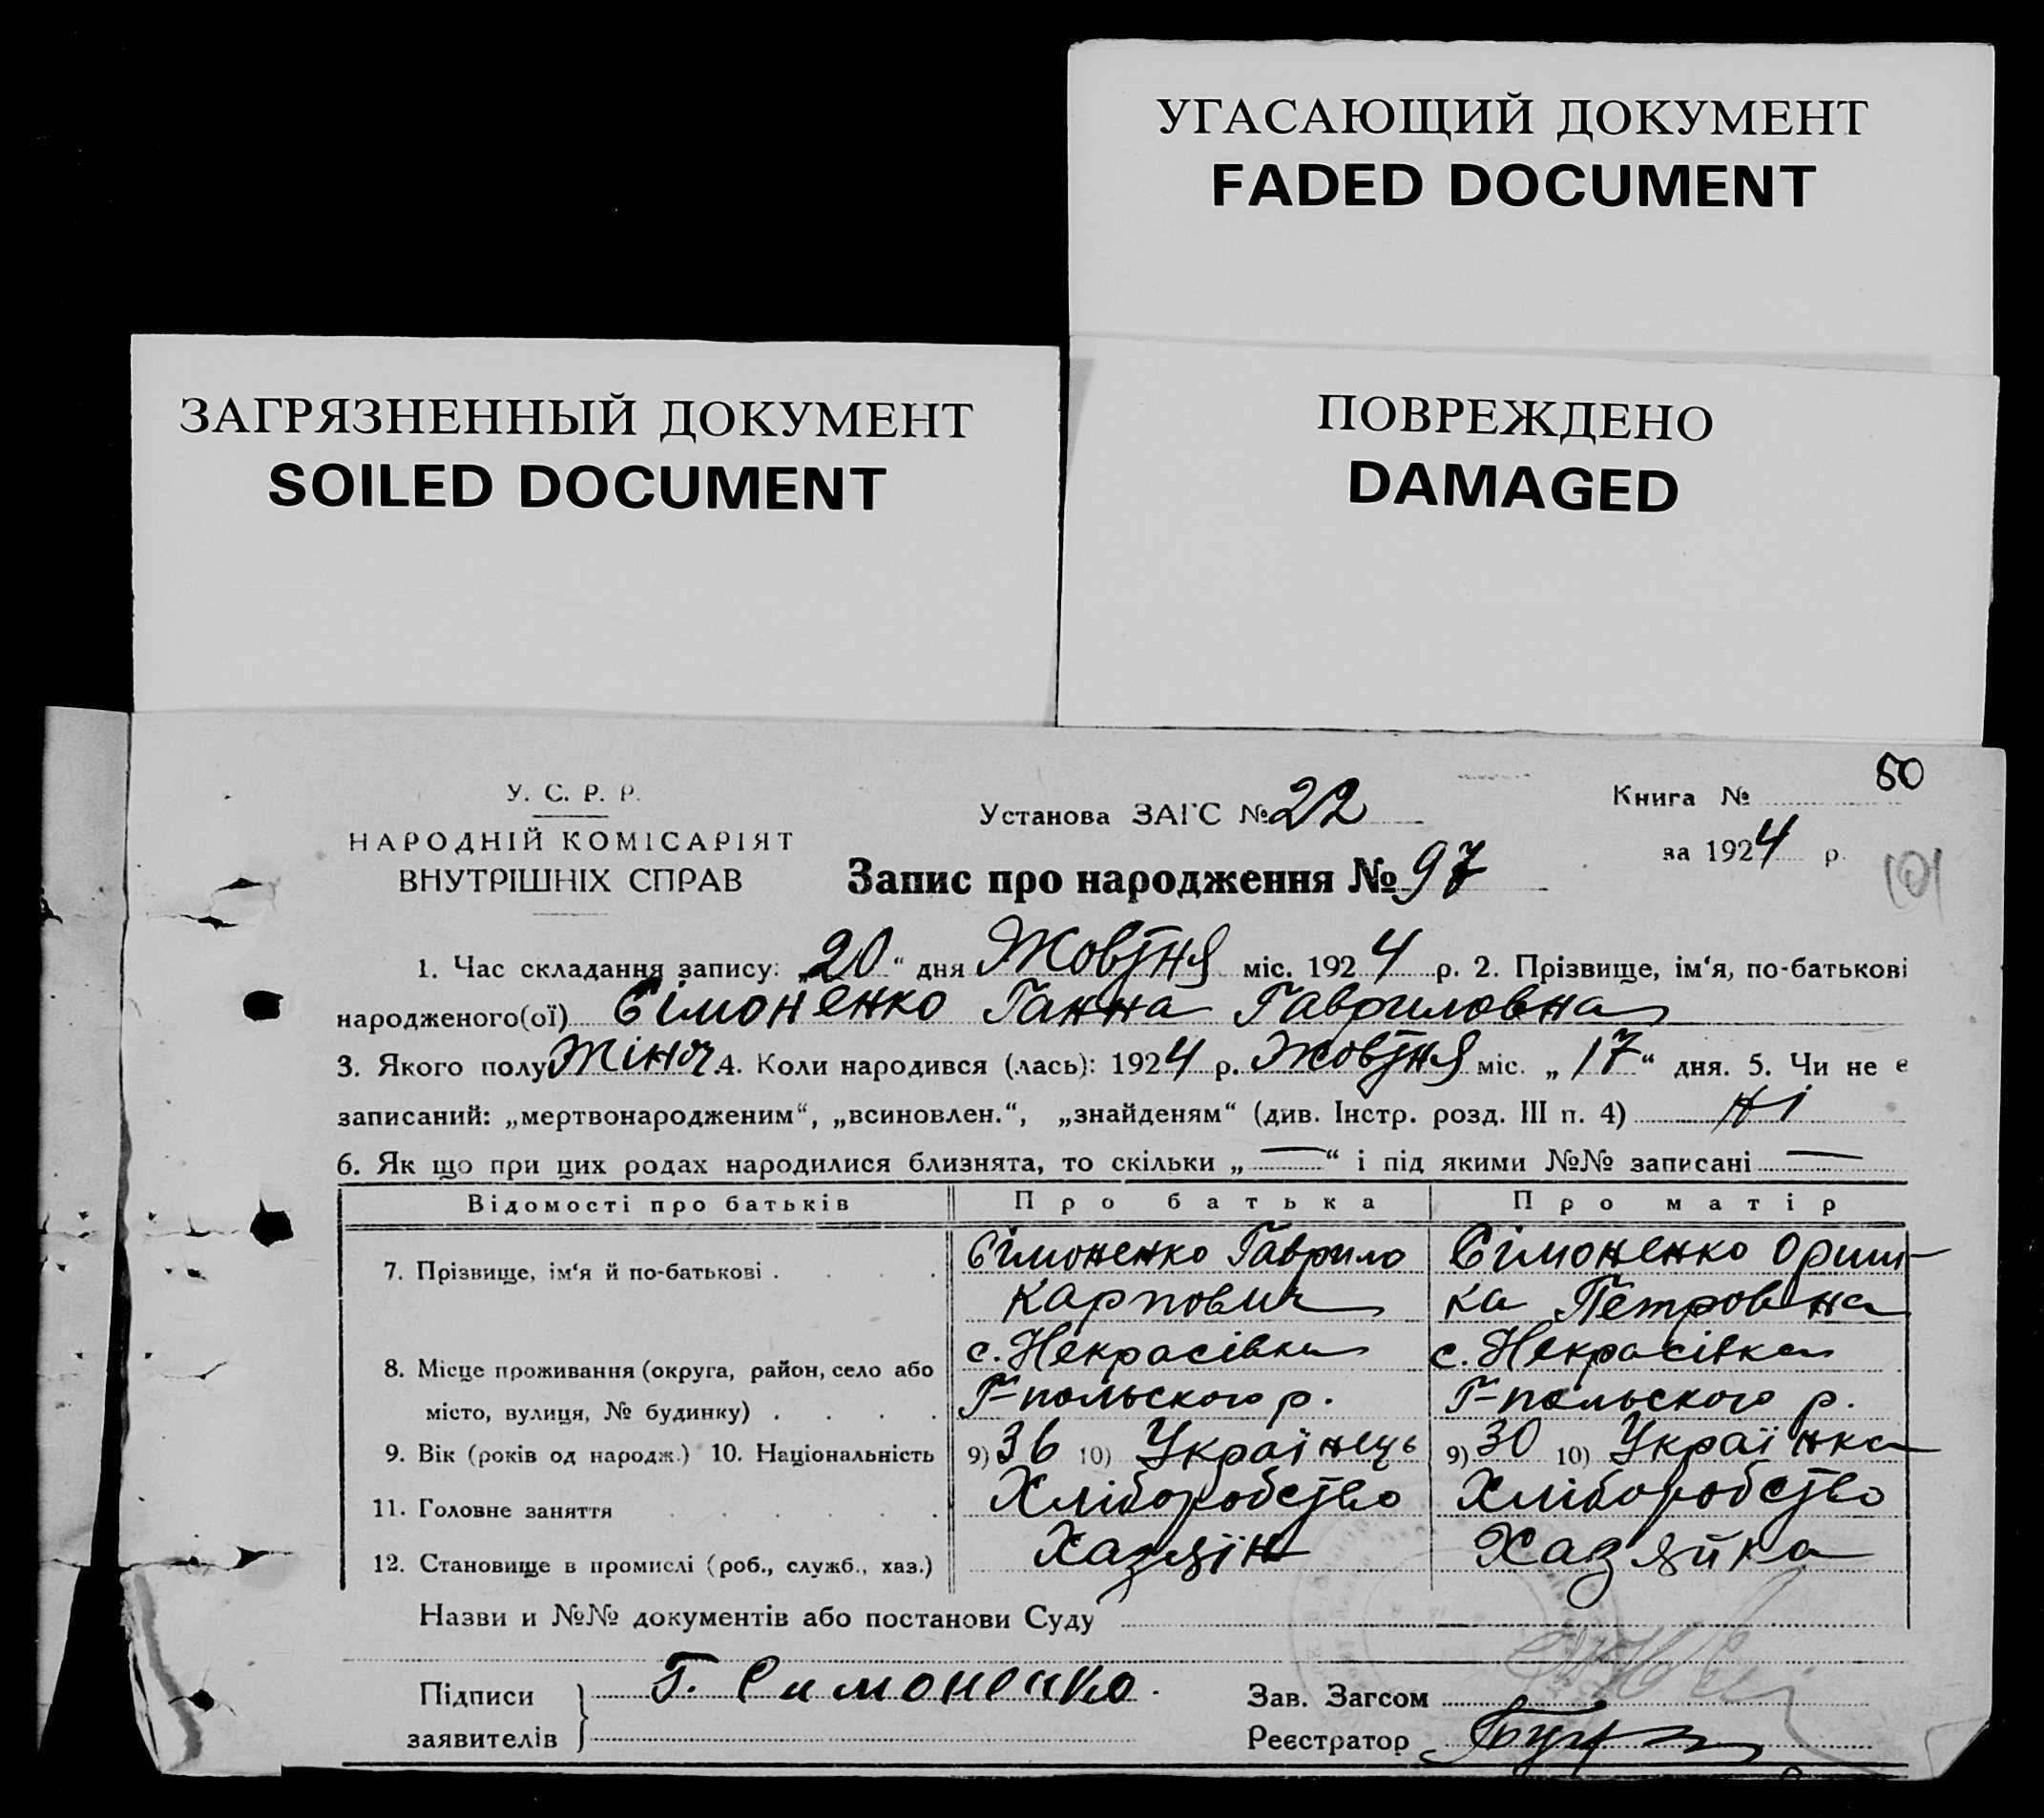 УГАСАЮЩИЙ ДОКУМЕНТ
FADED DOCUMENT
ЗАГРЯЗНЕННЫЙ ДОКУМЕНТ
SOILED DOCUMENT
ПОВРЕЖДЕНО
DAMAGED
50
У. С. Р. Р.
НАРОДНІЙ КОМІСАРІЯТ
ВНУТРІШНІХ СПРАВ
Установа ЗАГС № 22
Запис про народження № 97
Книга №
за 1924 р.
101
1. Час складання запису: „20“ дня Жовтня міс. 1924 р. 2. Прізвище, ім‘я, по-батькові
народженого(ої) Сімоненко Ганна Гавриловна
3. Якого полу Жіноч. 4. Коли народився (лась): 1924 р. Жовтня міс. „17“ дня. 5. Чи не е
записаний: „мертвонародженим“, „всиновлен.“, „знайденям“ (див. Інстр. розд. III п. 4) Ні
6. Як що при цих родах народилися близнята, то скільки „—“ і під якими №№ записані —
Відомості про батьків Про батька Про матір
7. Прізвище, ім‘я й по-батькові . . . . Сімоненко Гаврило Карпович Сімоненко Ориш-ка Петровна
8. Місце проживання (округа, район, село або с. Некрасівка с. Некрасівка
місто, вулиця, № будинку) . . . . Г-польского р. Г-польского р.
9. Вік (років од народж.) 10. Національність 9) 36 10) Українець 9) 30 10) Українка
11. Головне заняття . . . . . . Хліборобство Хліборобство
12. Становище в промислі (роб., служб., хаз.) Хазяїн Хазяйка
Назви и №№ документів або постанови Суду
Підписи
заявителів
Г. Симоненко.
Зав. Загсом
Реєстратор